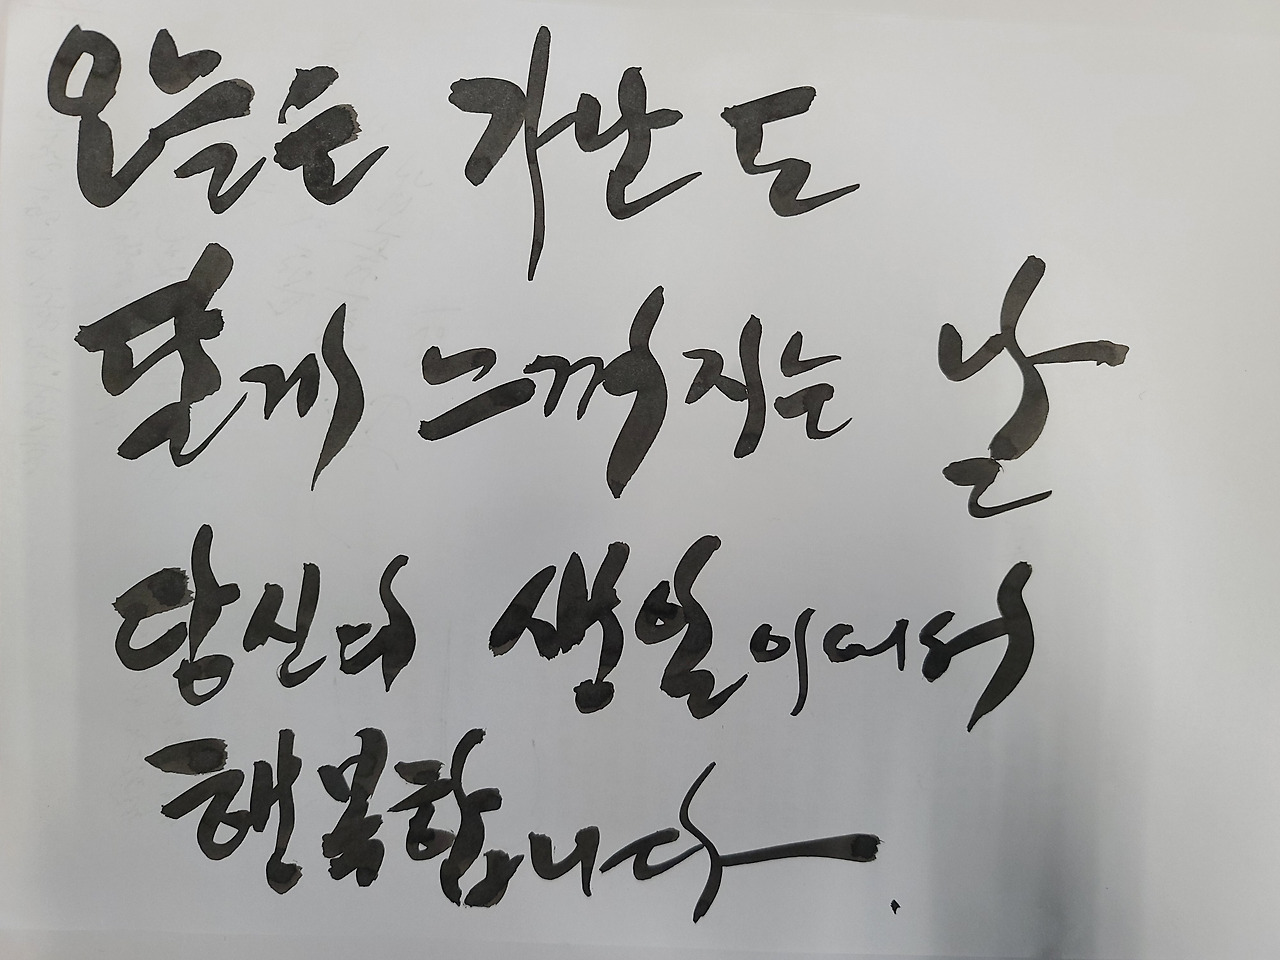 오늘은 가난도
달게 느껴지는 날
당신의 생일이어서
행복합니다.